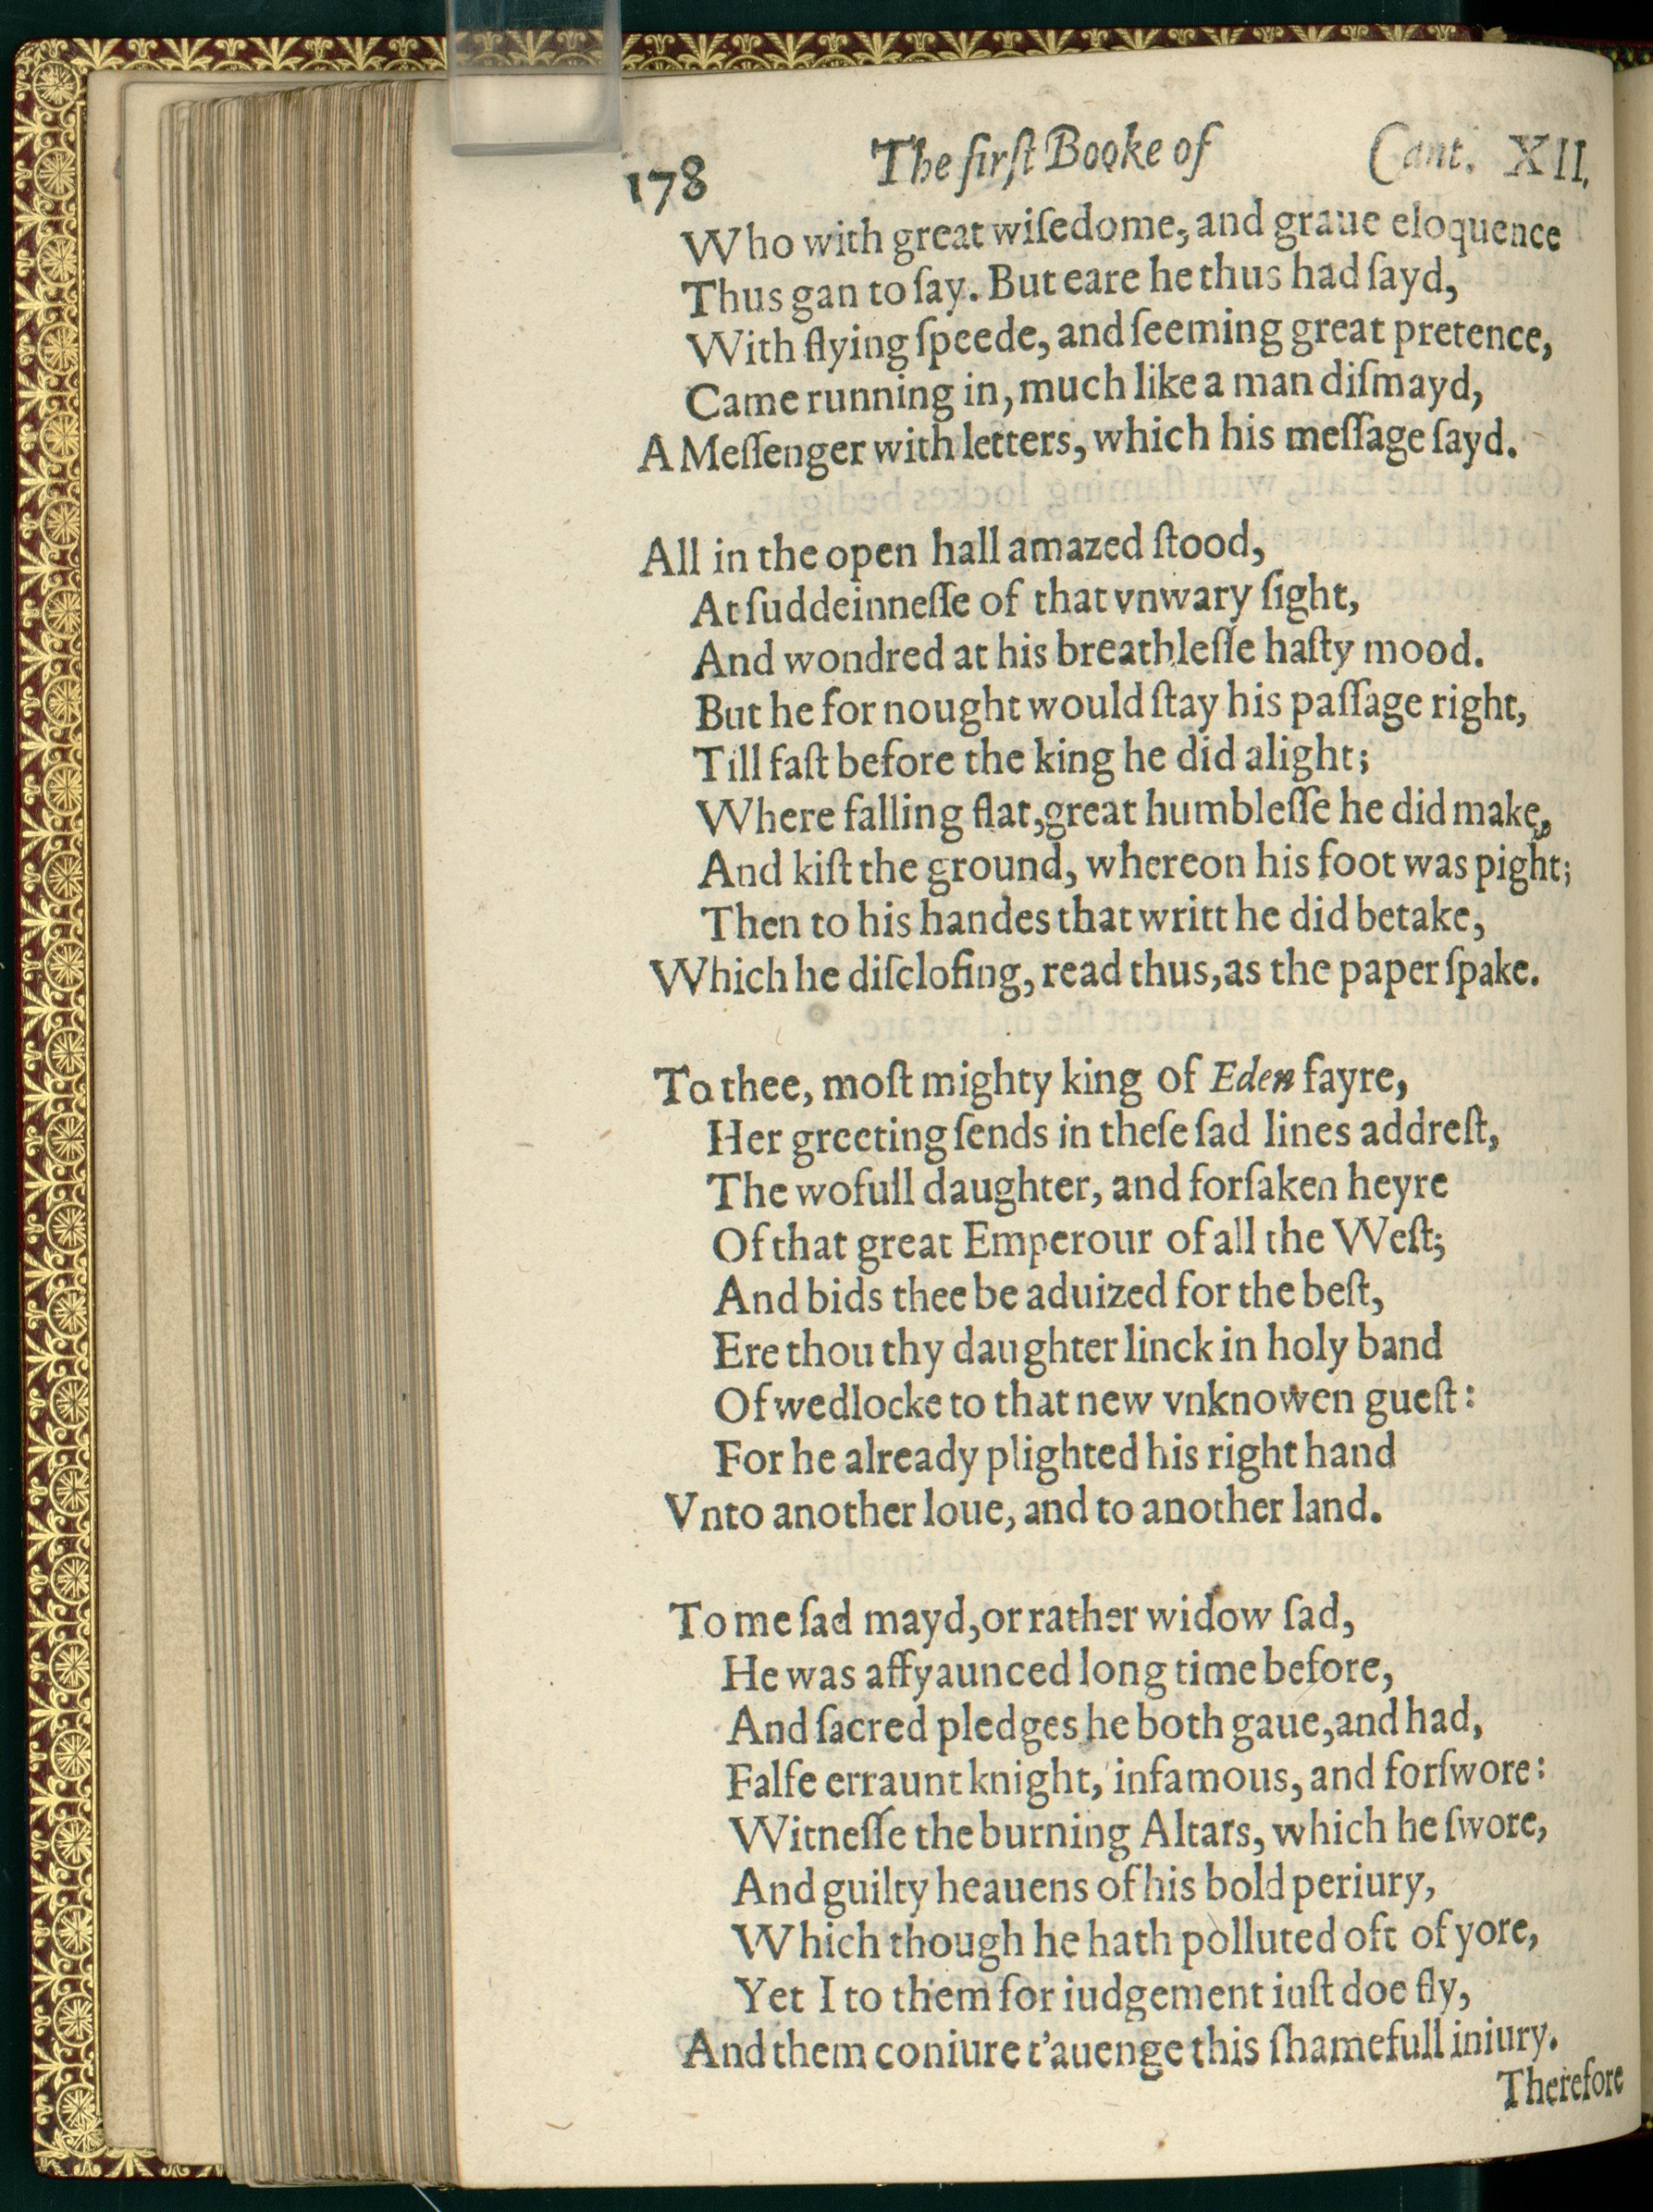 178 The firſt Booke of Cant. XII.
Who with great wiſedome, and graue eloquence
Thus gan to ſay. But eare he thus had ſayd,
With flying ſpeede, and ſeeming great pretence,
Came running in, much like a man diſmayd,
A Meſſenger with letters, which his meſſage ſayd.
All in the open hall amazed ſtood,
At ſuddeinneſſe of that vnwary ſight,
And wondred at his breathleſſe haſty mood.
But he for nought would ſtay his paſſage right,
Till faſt before the king he did alight;
Where falling flat, great humbleſſe he did make,
And kiſt the ground, whereon his foot was pight;
Then to his handes that writt he did betake,
Which he diſcloſing, read thus, as the paper ſpake.
To thee, moſt mighty king of Eden fayre,
Her greeting ſends in theſe ſad lines addreſt,
The wofull daughter, and forſaken heyre
Of that great Emperour of all the Weſt;
And bids thee be aduized for the beſt,
Ere thou thy daughter linck in holy band
Of wedlocke to that new vnknowen gueſt:
For he already plighted his right hand
Vnto another loue, and to another land.
To me ſad mayd, or rather widow ſad,
He was affyaunced long time before,
And ſacred pledges he both gaue, and had,
Falſe erraunt knight, infamous, and forſwore:
Witneſſe the burning Altars, which he ſwore,
And guilty heauens of his bold periury,
Which though he hath polluted oft of yore,
Yet I to them for iudgement iuſt doe fly,
And them coniure t'auenge this ſhamefull iniury.
Therefore